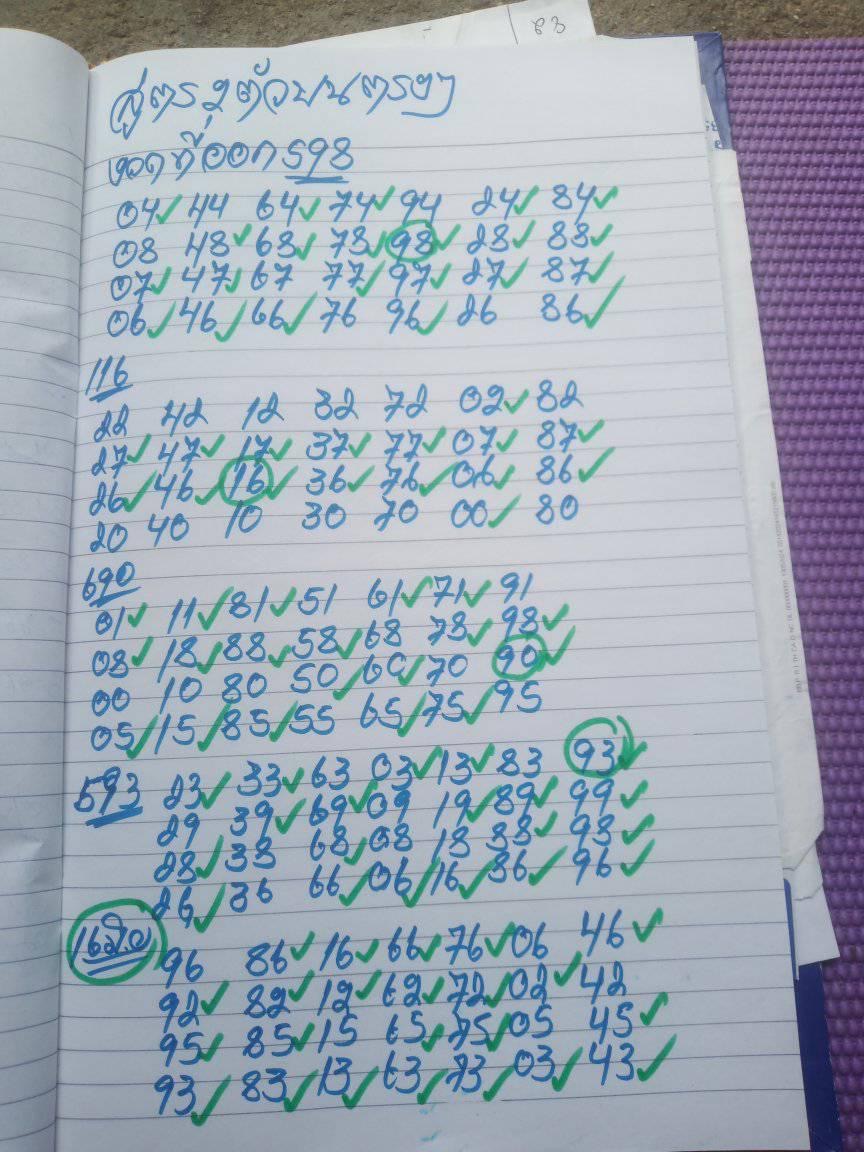 83
สูตร 2 ตัวบนตรงๆ
งวดที่ออก 598
04 44 64 74 94 24 84
08 48 68 78 98 28 88
07 47 67 77 97 27 87
06 46 66 76 96 26 86
116
22 42 12 32 72 02 82
27 47 17 37 77 07 87
26 46 16 36 76 06 86
20 40 10 30 70 00 80
690
01 11 81 51 61 71 91
08 18 88 58 68 78 98
00 10 80 50 60 70 90
05 15 85 55 65 75 95
593 23 33 63 03 13 83 93
29 39 69 09 19 89 99
28 38 68 08 18 88 98
26 36 66 06 16 86 96
16มิ.ย
96 86 16 66 76 06 46
92 82 12 62 72 02 42
95 85 15 65 75 05 45
93 83 13 63 73 03 43